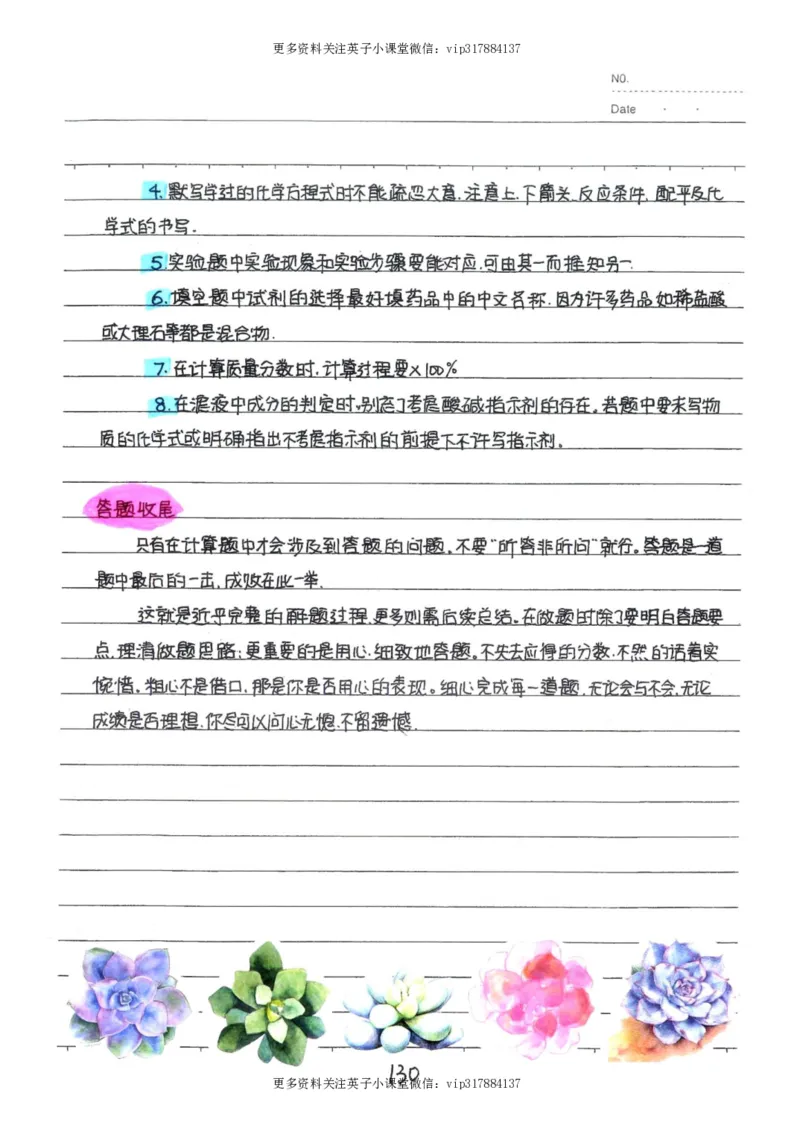 更多资料关注英子小课堂微信：vip317884137
NO.
Date
4.默写学过的化学方程式时不能疏忽大意.注意上.下箭头.反应条件,配平及化
学式的书写.
5.实验题中实验现象和实验步骤要能对应.可由其一而推知另一.
6.填空题中试剂的选择最好填药品中的中文名称.因为许多药品如稀盐酸
或大理石等都是混合物.
7.在计算质量分数时.计算过程要×100%
8.在滤液中成分的判定时,别忘了考虑酸碱指示剂的存在。若题中要求写物
质的化学式或明确指出不考虑指示剂的前提下不许写指示剂。
答题收尾
只有在计算题中才会涉及到答题的问题。不要“所答非所问”就行。答题是一道
题中最后的一击,成败在此一举.
这就是近乎完整的解题过程.更多则需后续总结。在做题时除了要明白答题要
点.理清做题思路;更重要的是用心.细致地答题。不失去应得的分数.不然的话着实
惋惜。粗心不是借口.那是你是否用心的表现。细心完成每一道题.无论会与不会.无论
成绩是否理想.你尽可以问心无愧.不留遗憾.
130
更多资料关注英子小课堂微信：vip317884137